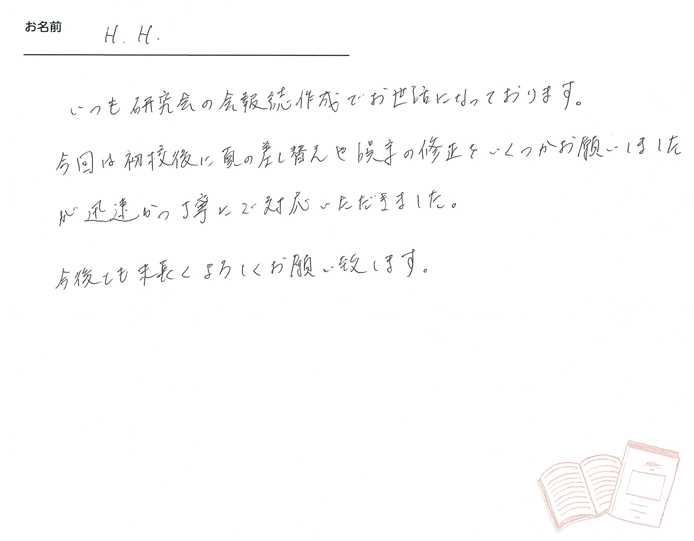 お名前 H.H.
いつも研究会の会報誌作成でお世話になっております。
今回は初校後に頁の差し替えや誤字の修正をいくつかお願いしました
が迅速かつ丁寧にご対応いただきました。
今後とも末長くよろしくお願い致します。